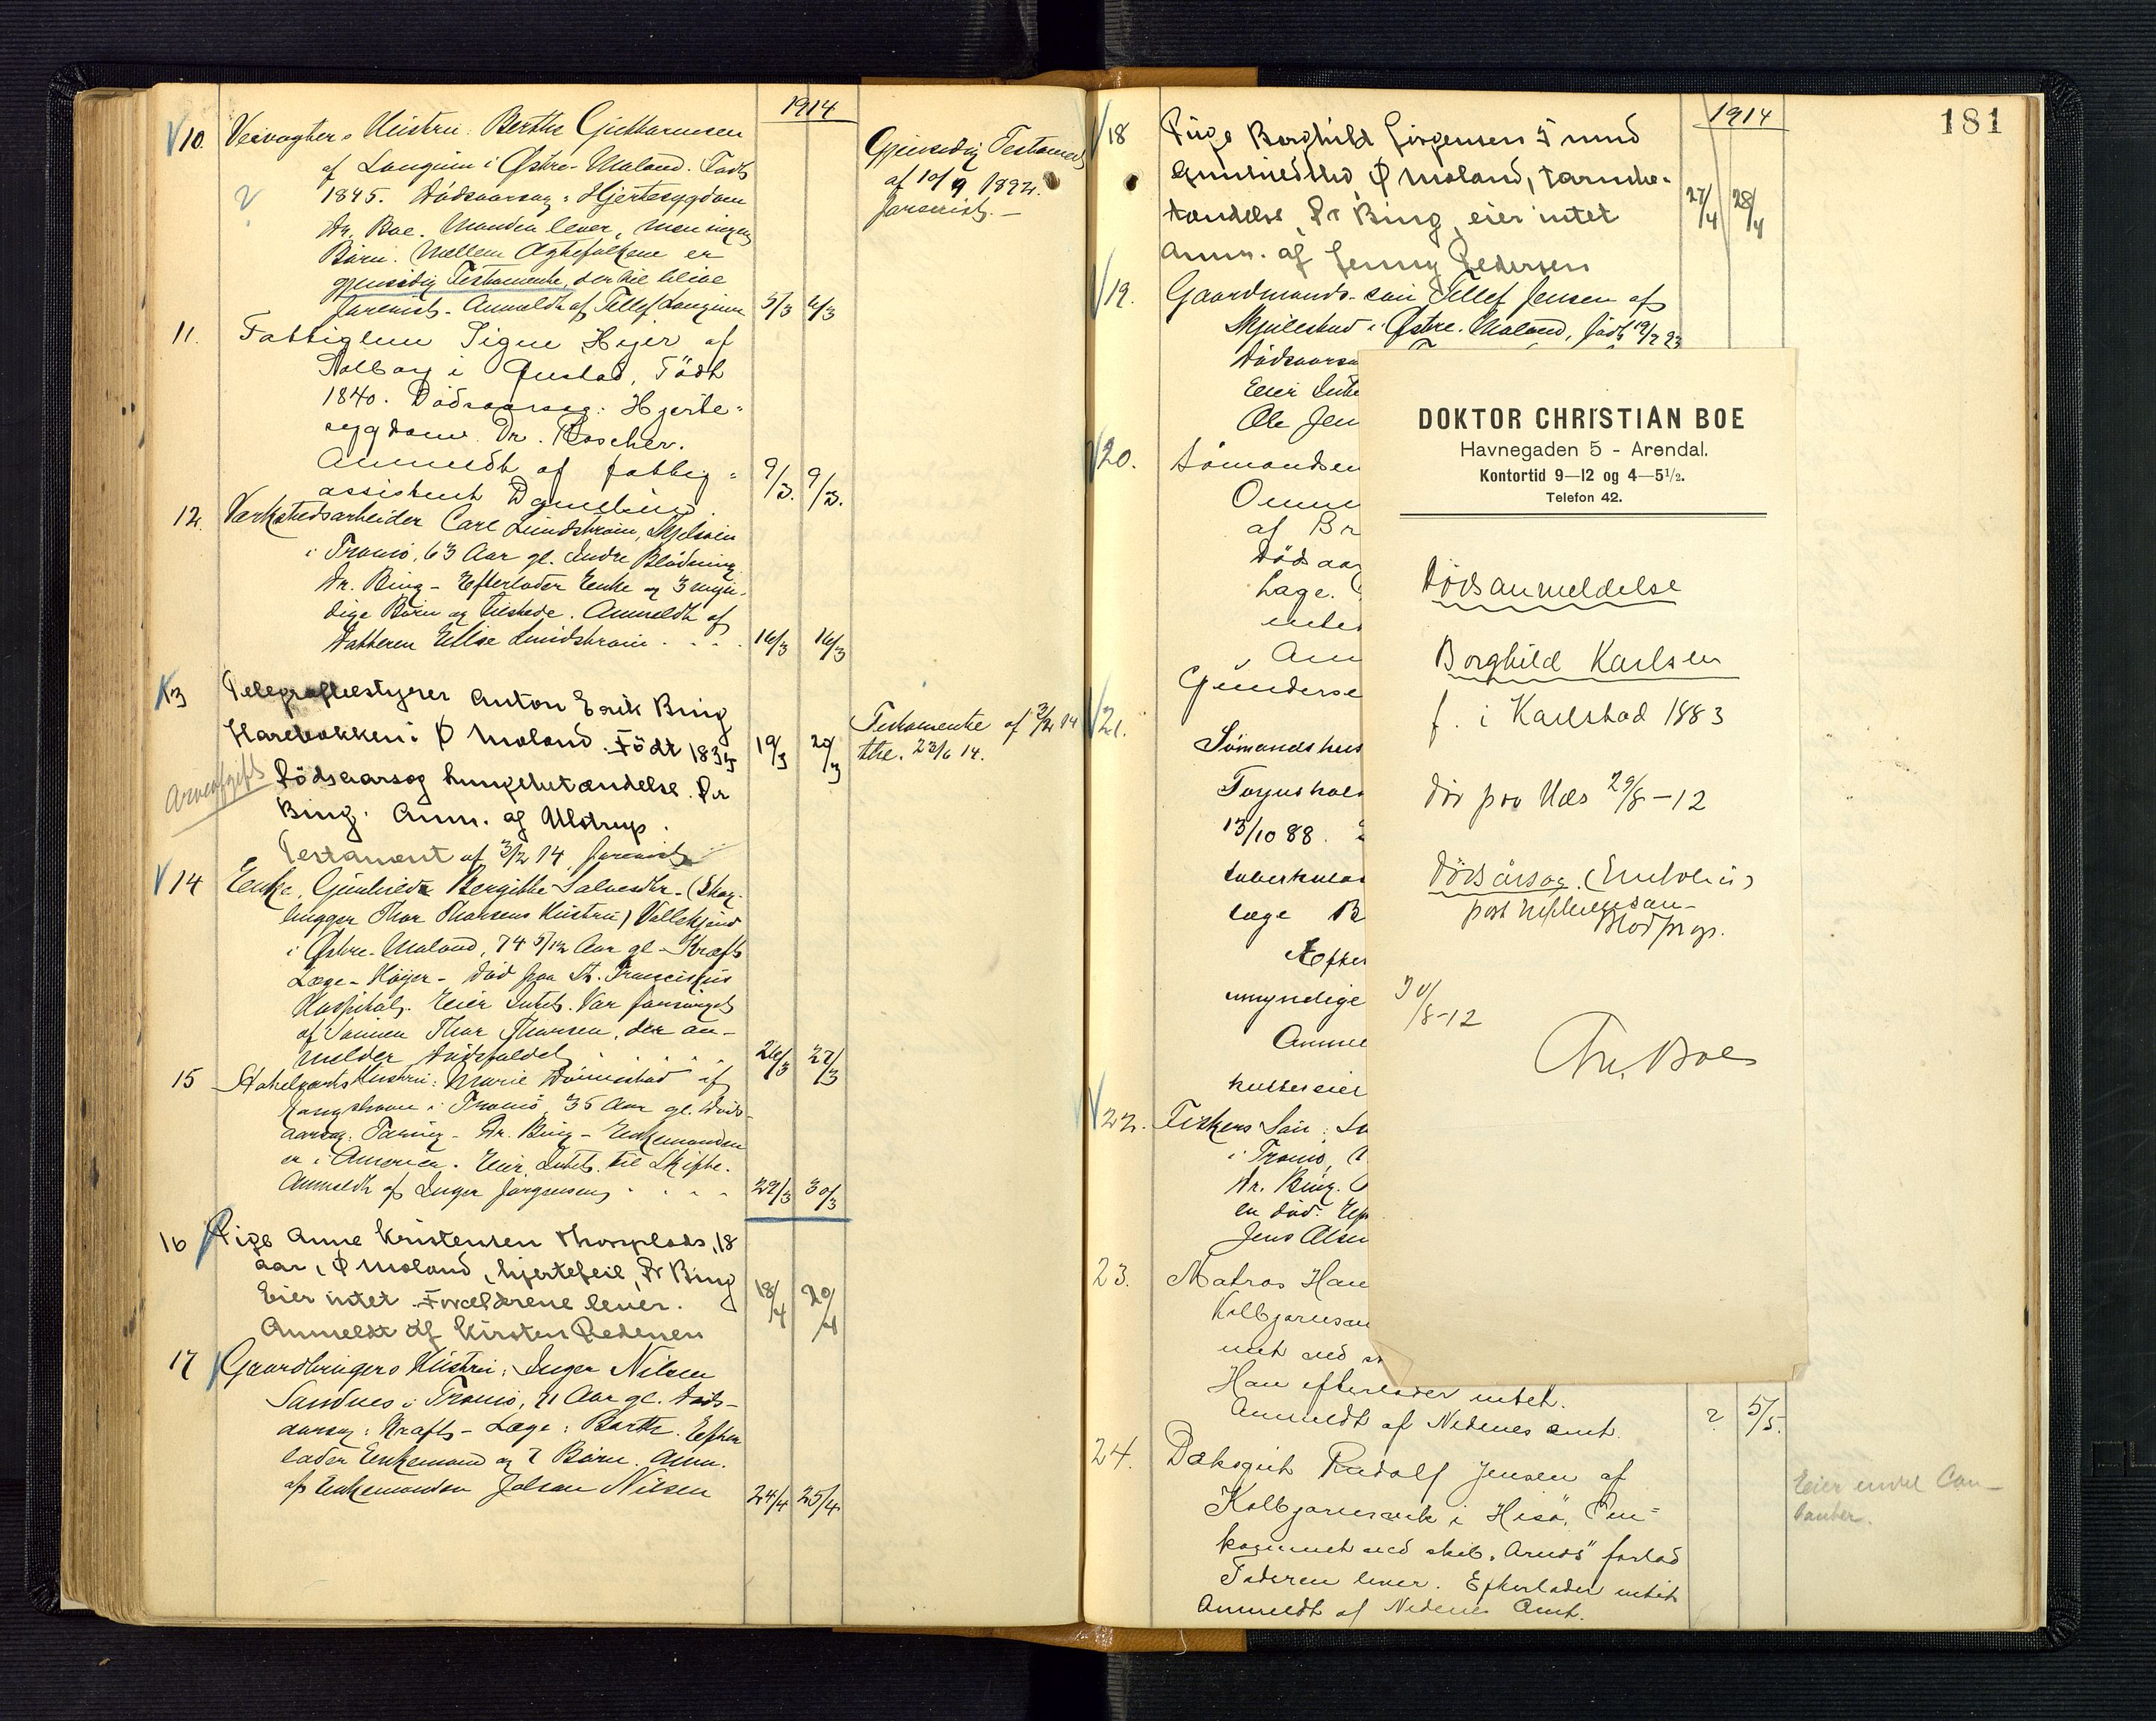 1914
V10. Veivogters Hustru: Berthe Guttormsen
af Langium i Østre-Moland. Født
1845. Dødsaarsag: Hjertesygdom
Dr. Boe. Manden lever, men ingen
Børn. Mellem Ægtefolkene er
gjensidig Testamente, der vil blive
forevist. Anmeldt af Tellef Langium 5/3 6/3
Gjensidig Testament
af 10/9 1892
forevist. —
11. Fattiglem Signe Hejer af
i Øiestad, Født
1840. Dødsaarsag: Hjerte-
sygdom. Dr. Roscher.
Anmeldt af fattig-
assistent Danielsen. 9/3. 9/3.
12. Verkstedsarbeider Carl Lundstrøm, Skjelsøen
i Tromø, 63 Aar gl. Indre Blødning
Dr. Bing - Efterlader Enke og 3 myn-
dige Børn og tilstede. Anmeldt af
Datteren Ellise Lundstrøm . . . 16/3 16/3
13 Telegrafbestyrer Anton Erik Bing
Harebakken i Ø Moland. Født 1835 19/3 20/3
Dødsaarsag lungebetændelse. Dr
Bing. Anm. af Ulstrup.
Testament af 3/2 14 forevist
Arveafgift
Testamente af 3/2 14
23/6 14.
V14 Enke, Gunhilde Bergithe Salvesdtr - (Skog-
hugger Thor Thorsens Hustru) Vallekjend
i Østre-Moland, 74 5/12 Aar gl - Kræft
Læge - Høyer - død paa St. Franciskus
Hospital. Eier Intet. Var forsørget
af Sønnen Thor Thorsen, der an-
melder dødsfaldet . . . . . 26/3 27/3
15 Hustru: Marie Dømmestad af
i Tromø, 35 Aar gl. Døds-
aarsag. Tæring - Dr. Bing - Enkemanden
er i America. Eier Intet til Skifte.
Anmeldt af Inger Jørgensen . . . . 29/3 30/3
16 Pige Anne Kristensen Thorsplads, 18
aar, Ø Moland, hjertefeil, Dr Bing
Eier intet. Forældrene lever. 18/4 20/4
Anmeldt af Kirsten Pedersen
17 Gaardbrugers Hustru: Inger Nilsen
Sandnes i Tromø, 71 Aar gl. Døds-
aarsag: Kræft - Læge: Barth. Efter-
lader Enkemand og 7 Børn. Anm.
af Enkemanden Johan Nilsen 24/4 25/4
1914
181
V18 Pige Borghild Jørgensen 5 mnd
Ø Moland, tarmbe-
tændelse, Dr Bing, eier intet 27/4 28/4
Anm. af Jenny Pedersen
V19. Gaardmands-søn Tellef Jensen af
Skjulestad i Østre-Moland, født 19/2 93
Dødsaarsa
Eier Inte
Ole Jen
V20. Sømandsen
af Br
Dødsaar
Læge.
intet
Anm
V21. Gunderse
Sømandshus
13/10 88.
tuberkulos
læge B
Efter
umyndige
Anme
kuttereier
V22. Fiskers Søn:
i Tromø,
Dr. Bing.
en død.
Jens Olsen
23. Matros Han
Kolbjørnsen
Han efterlader intet.
Anmeldt af Nedenes amt. ? 5/5.
24. Dæksgut Rudolf Jensen af
Kolbjørnsvik i Hisø, Om-
kommet ved skib "Arnds" forlad
Faderen lever. Efterlader intet
Anmeldt af Nedenes Amt.
Eier
DOKTOR CHRISTIAN BOE
Havnegaden 5 - Arendal.
Kontortid 9—12 og 4—5½.
Telefon 42.
Dødsanmeldelse
Borghild Karlsen
f. i Karlstad 1883
død paa Næs 29/8-12
Dødsårsag. (Embolus
post
Blodprop.
30/8-12
Chr. Boe